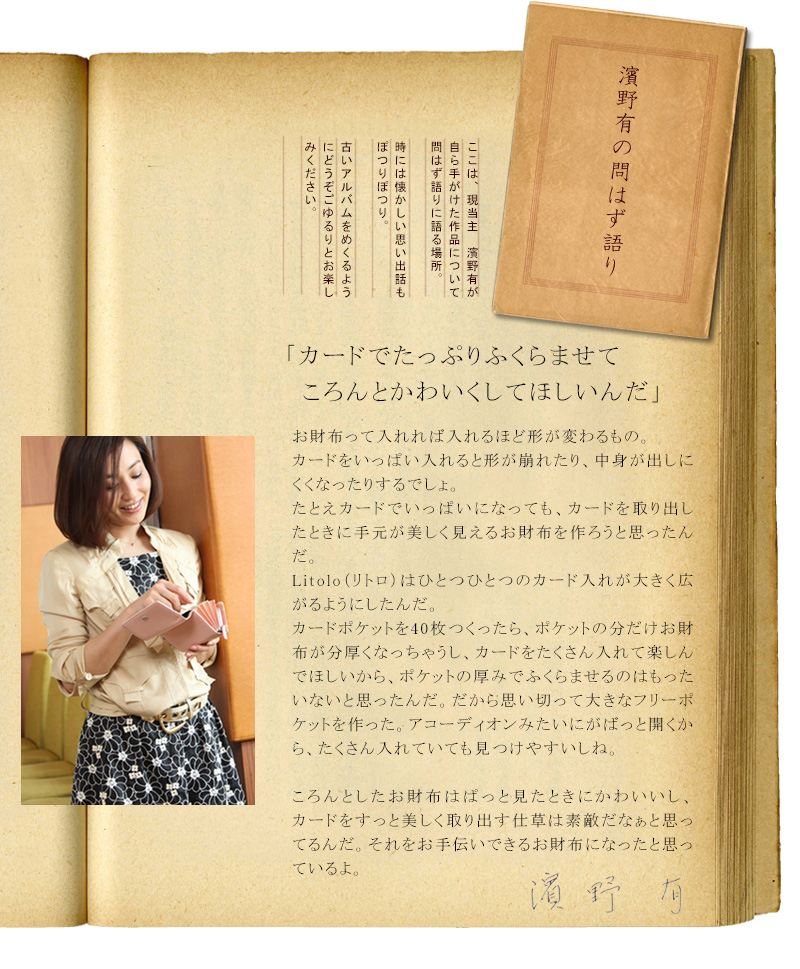 濱野有の問はず語り
ここは、現当主　濱野有が
自ら手がけた作品について
問はず語りに語る場所。
時には懐かしい思い出話も
ぽつりぽつり。
古いアルバムをめくるよう
にどうぞごゆるりとお楽し
みください。
「カードでたっぷりふくらませて
ころんとかわいくしてほしいんだ」
お財布って入れれば入れるほど形が変わるもの。
カードをいっぱい入れると形が崩れたり、中身が出しに
くくなったりするでしょ。
たとえカードでいっぱいになっても、カードを取り出し
たときに手元が美しく見えるお財布を作ろうと思ったん
だ。
Litolo（リトロ）はひとつひとつのカード入れが大きく広
がるようにしたんだ。
カードポケットを40枚つくったら、ポケットの分だけお財
布が分厚くなっちゃうし、カードをたくさん入れて楽しん
でほしいから、ポケットの厚みでふくらませるのはもった
いないと思ったんだ。だから思い切って大きなフリーポ
ケットを作った。アコーディオンみたいにがばっと開くか
ら、たくさん入れていても見つけやすいしね。
ころんとしたお財布はぱっと見たときにかわいいし、
カードをすっと美しく取り出す仕草は素敵だなぁと思っ
てるんだ。それをお手伝いできるお財布になったと思っ
ているよ。
濱野 有